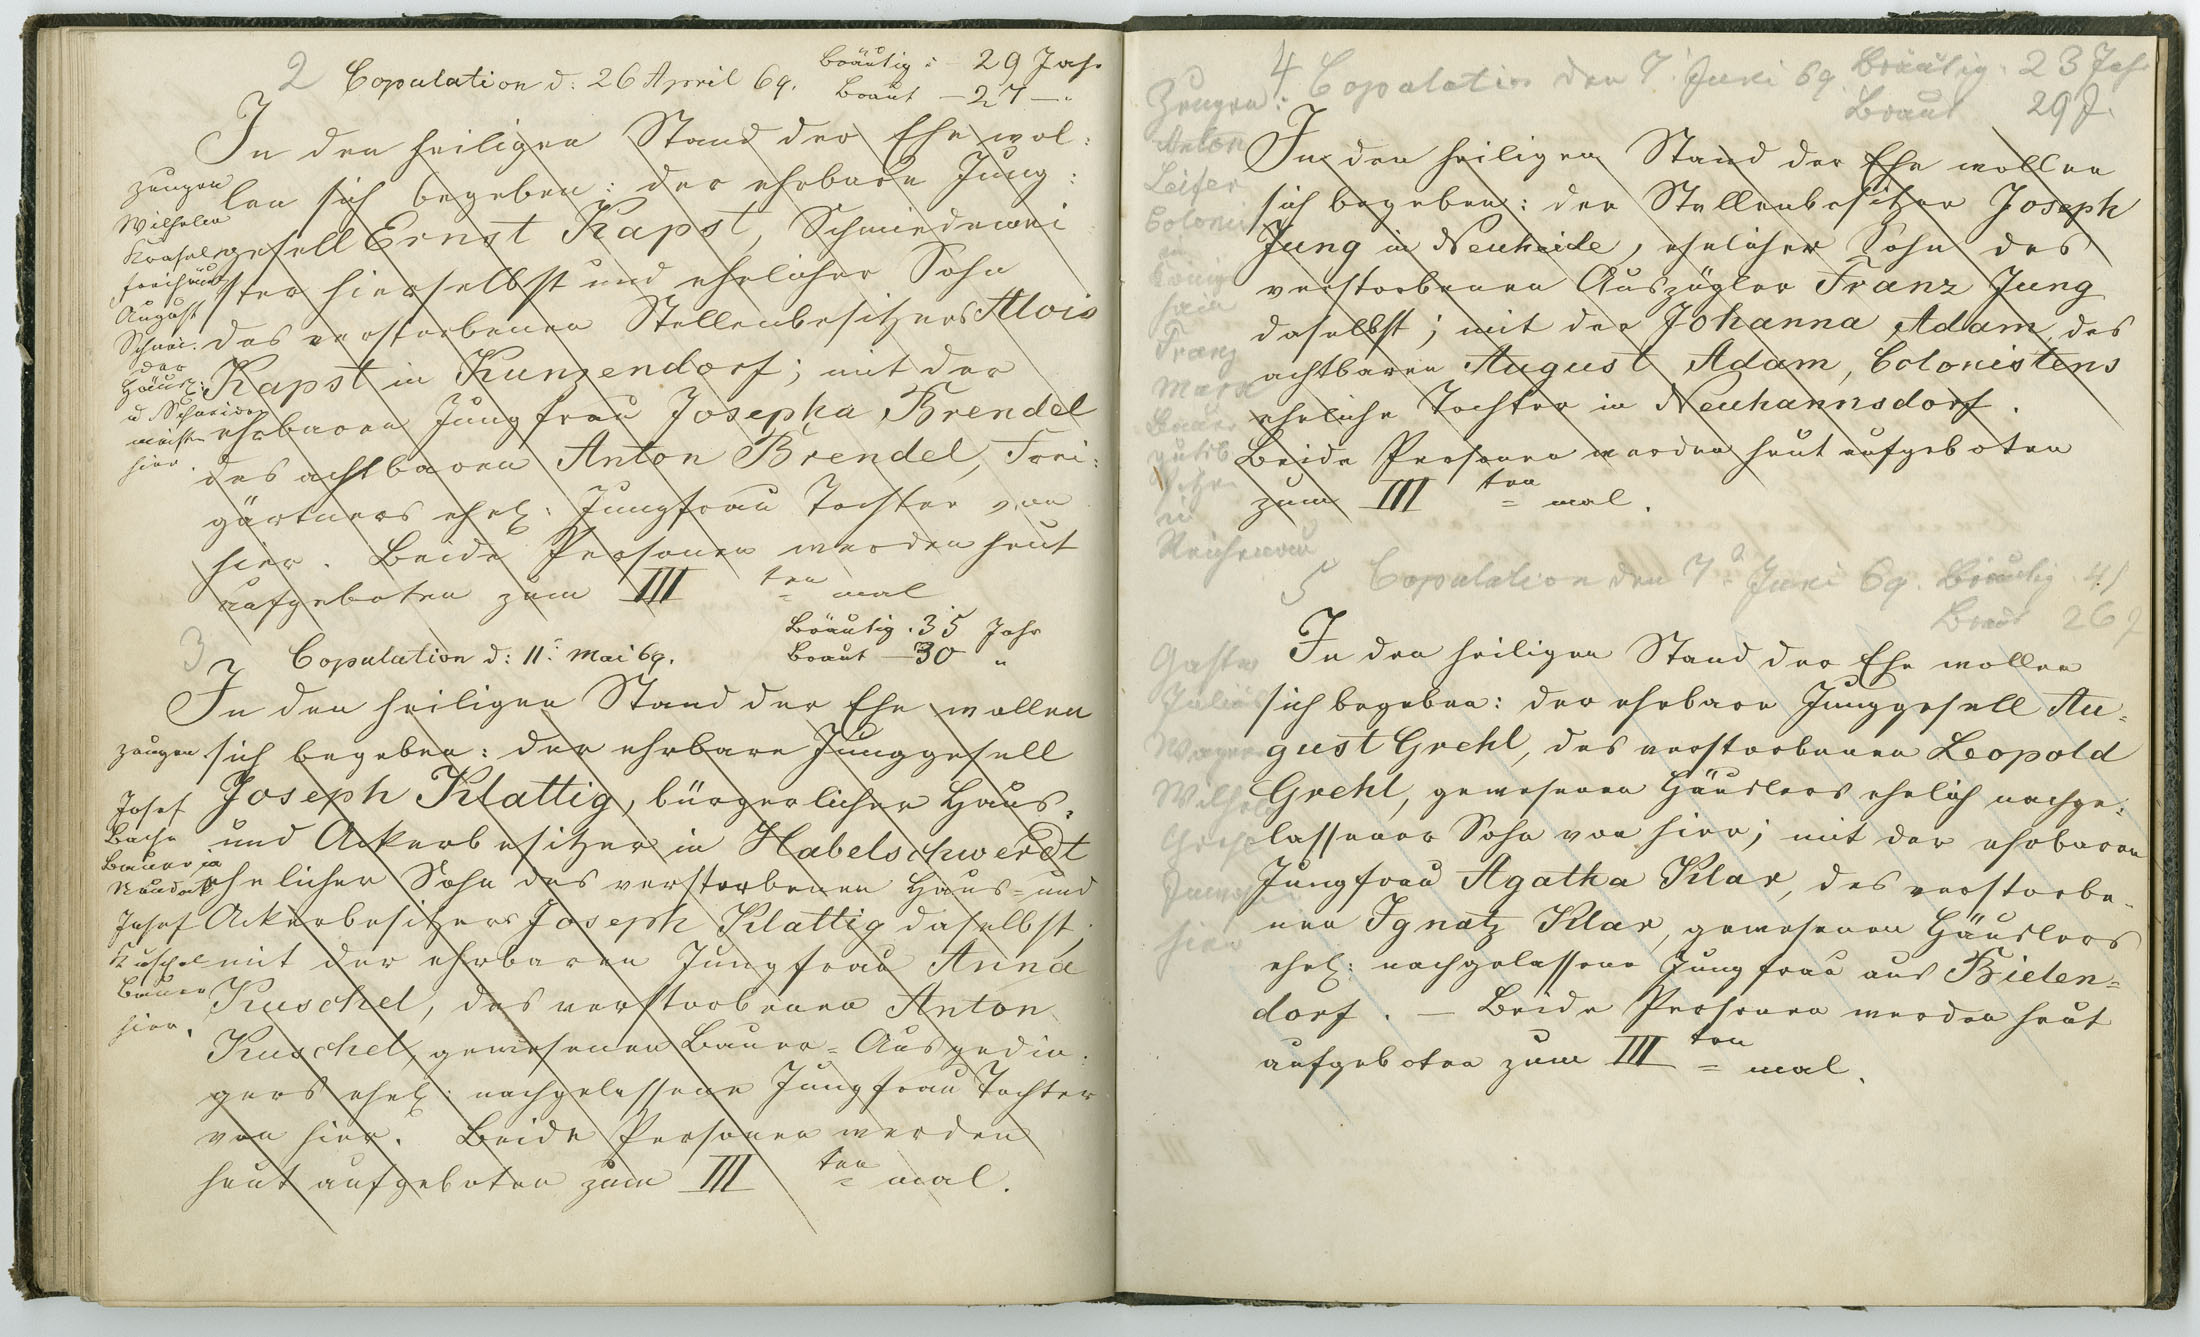 2 Copulation d. 26 April 69. Bräutig: - 29 Jahr
Braut - 27 - "
In den heiligen Stand der Ehe wol:
len sich begeben: der ehrbare Jung:
gesell Ernst Kapst, Schmiedemei
ster hierselbst und ehelicher Sohn
des verstorbenen Stellenbesitzers Alois
Kapst in Kunzendorf; mit der
ehrbaren Jungfrau Josepha Brendel
des achtbaren Anton Brendel, Frei:
gärtners ehel: Jungfrau Tochter von
hier. Beide Personen werden heut
aufgeboten zum III ten mal
Zeugen
Wilhelm
August
Schnei:
der
Häusl:
u. Schneider
meister
hier.
3 Copulation d: 11. Mai 69. Bräutig. 35 Jahr
Braut - 30 "
In den heiligen Stand der Ehe wollen
sich begeben: der ehrbare Junggesell
Joseph Klattig, bürgerlicher Haus-
und Ackerbesitzer in Habelschwerdt
ehelicher Sohn des verstorbenen Haus- und
Ackerbesitzers Joseph Klattig daselbst,
mit der ehrbaren Jungfrau Anna
Kuschel, des verstorbenen Anton
Kuschel, gewesenen Bauer-Ausgedin:
gers ehel: nachgelassene Jungfrau Tochter
von hier. Beide Personen werden
heut aufgeboten zum III ten mal.
Zeugen
Josef
Bauer in
Neudorf
Josef
Kuschel
Bauer
hier.
4 Copulation den 7. Juni 69. Bräutig. 23 Jahr
Braut 29 J.
In den heiligen Stand der Ehe wollen
sich begeben: der Stellenbesitzer Joseph
Jung in Neuheide, ehelicher Sohn des
verstorbenen Auszügler Franz Jung
daselbst; mit der Johanna Adam, des
achtbaren August Adam, Colonistens
eheliche Tochter in Neuhannsdorf.
Beide Personen werden heut aufgeboten
zum III ten mal.
Zeugen:
Anton
Colonist
in
Königs
hain
Franz
Bauer
gutsb
sitzer
in
Reichenau
5 Copulation den 7. Juni 69. Bräutig
Braut 26 J
In den heiligen Stand der Ehe wollen
sich begeben: der ehrbare Junggesell Au-
gust Grehl, des verstorbenen Leopold
Grehl, gewesenen Häuslers ehelich nachge:
lassener Sohn von hier; mit der ehrbaren
Jungfrau Agatha Klar, des verstorbe-
nen Ignatz Klar, gewesenen Häuslers
ehel: nachgelassene Jungfrau aus Bielen-
dorf. - Beide Personen werden heut
aufgeboten zum III ten mal.
Julius
Wilhelm
Grehl
hier